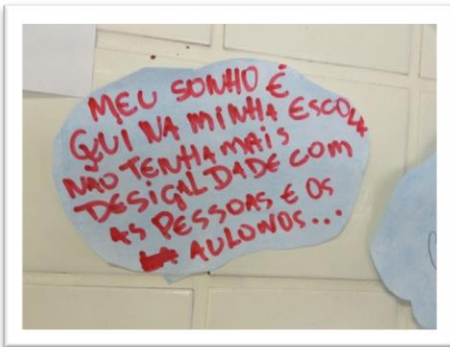 MEU SONHO É
QUI NA MINHA ESCOLA
NÃO TENHA MAIS
DESIGALDADE COM
AS PESSOAS E OS
AULONOS...